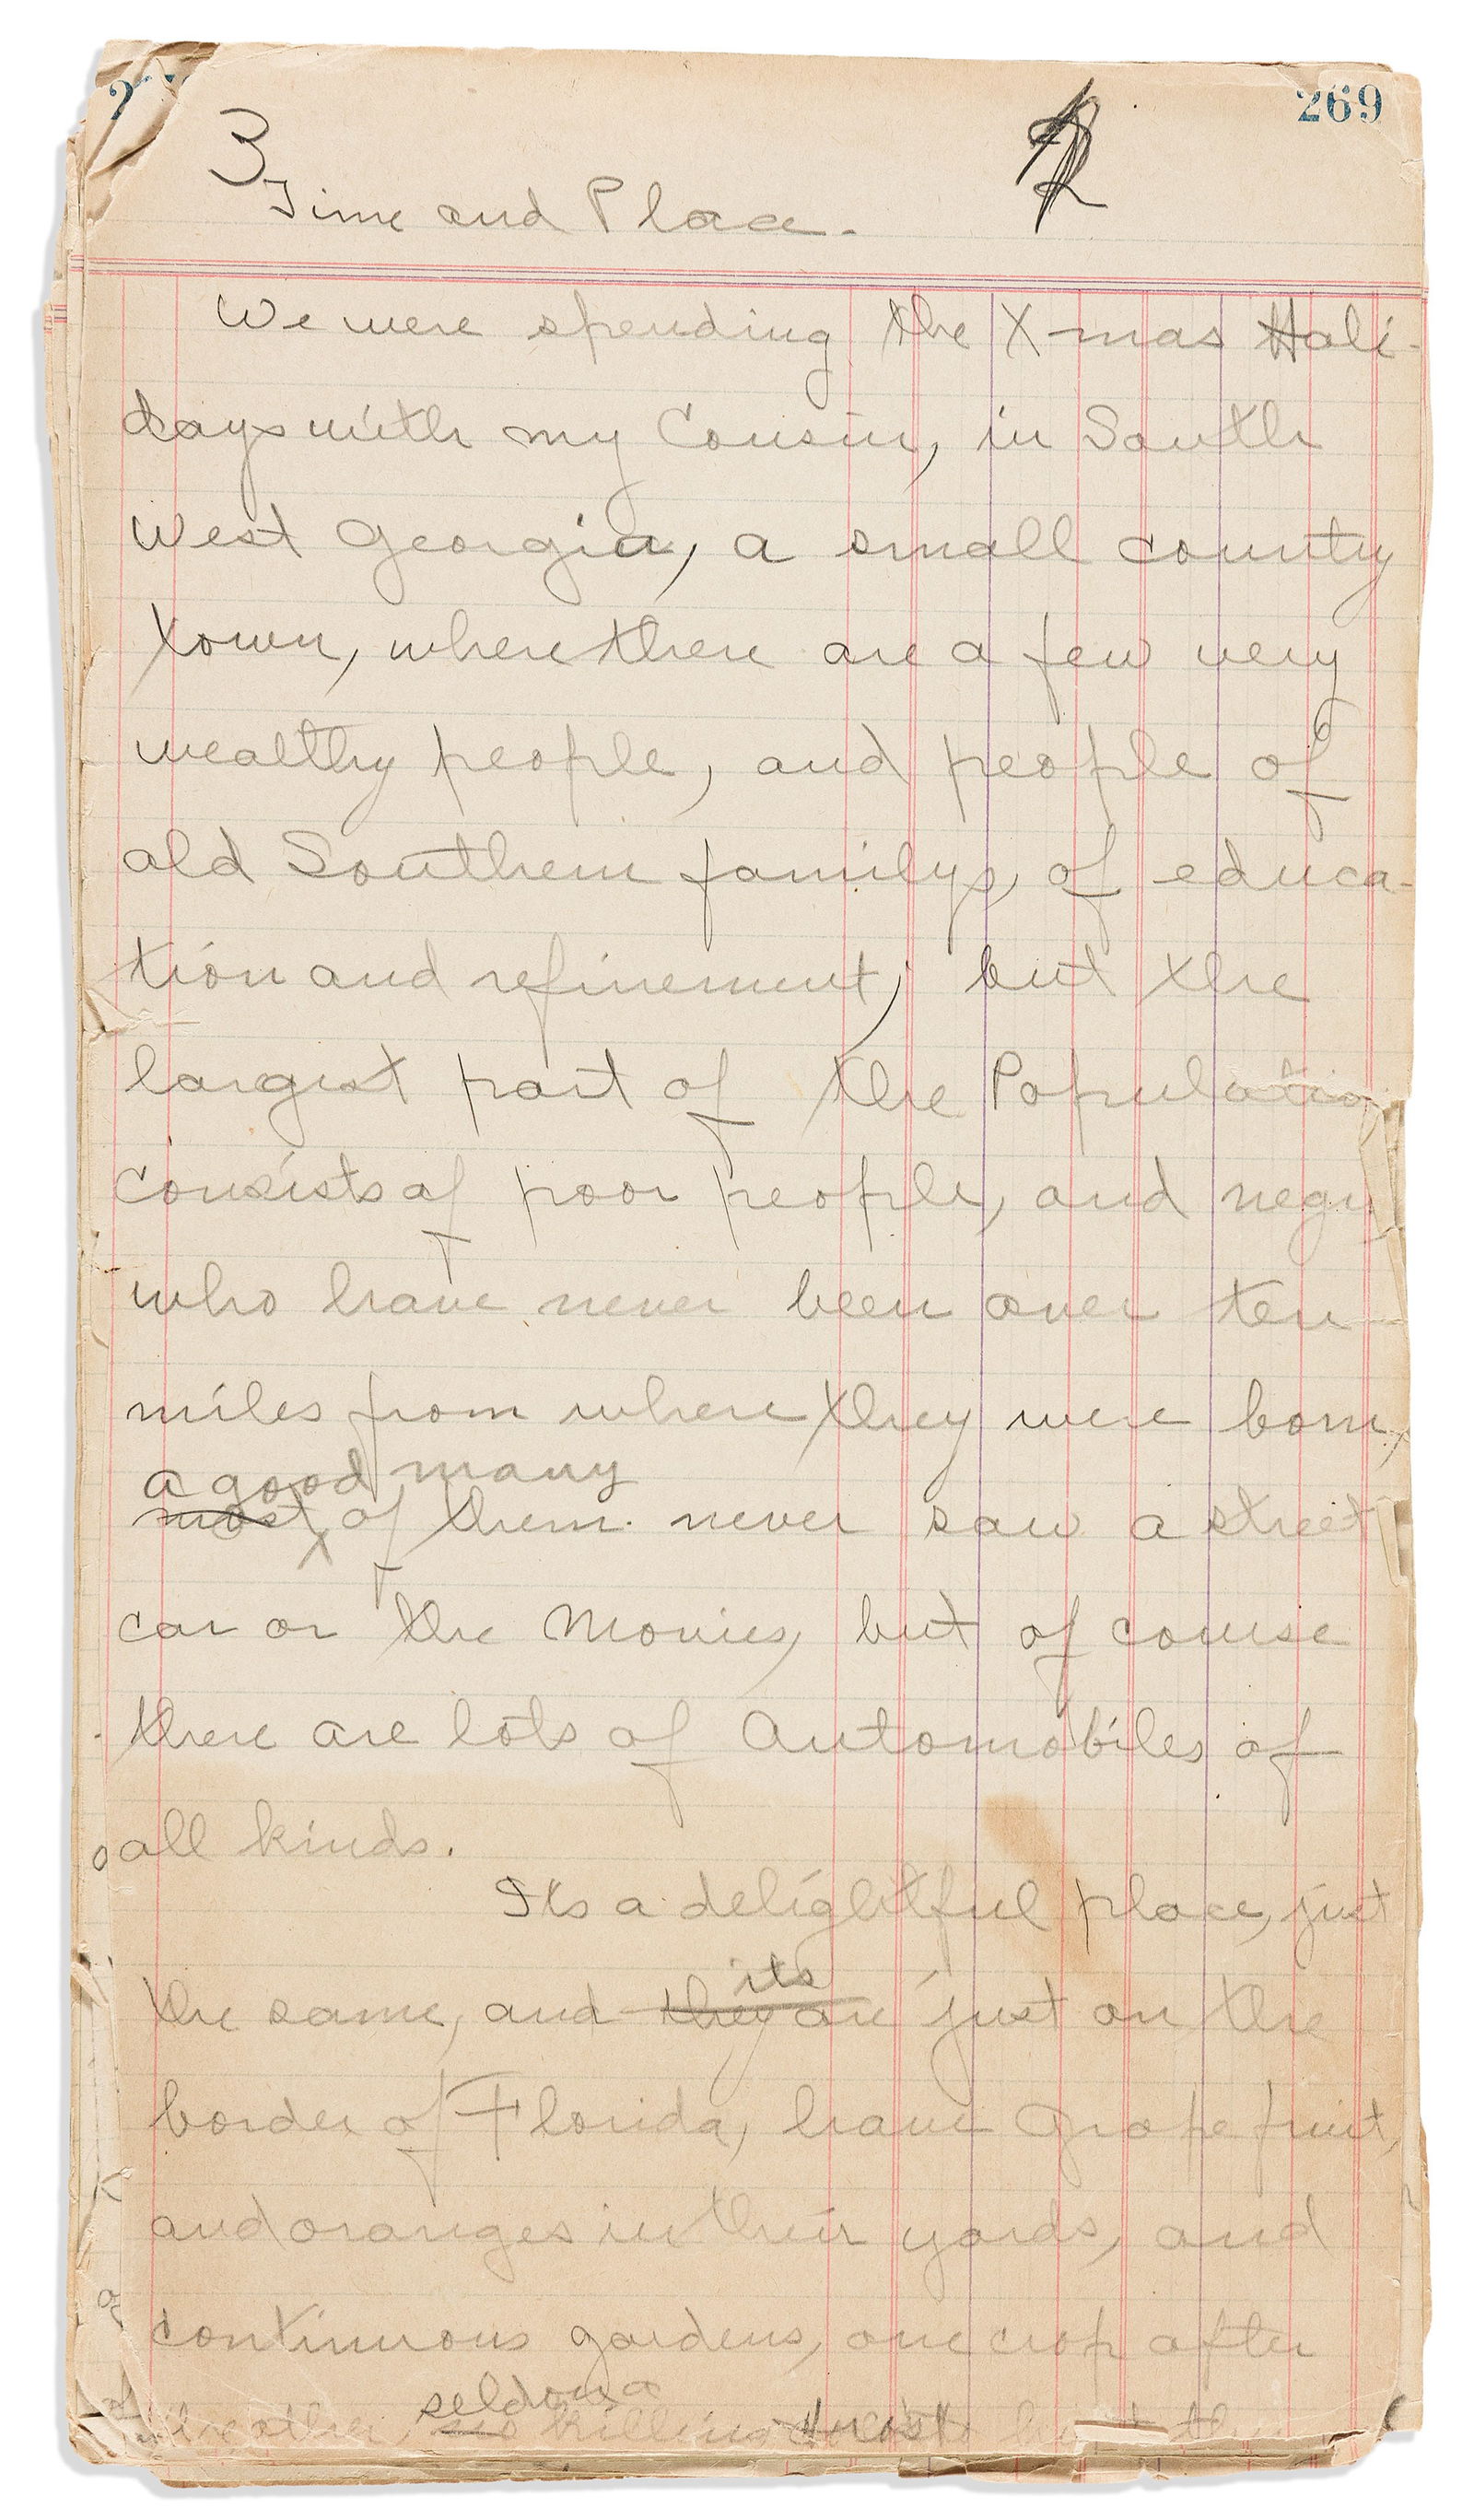 269
3
Time and Place.
We were spending the X-mas Holi-
days with my Cousin, in South
West Georgia, a small county
town, where there are a few very
wealthy people, and people of
old Southern familys, of educa-
tion and refinement, but the
largest part of the Populatio
consists of poor people, and negr
who have never been over ten
miles from where they were born,
a good many
most of them never saw a street
car or the Movies, but of course
there are lots of Automobiles of
all kinds.
Its a delightful place, just
its
the same, and they are just on the
border of Florida, have Grape fruit,
and oranges in their yards, and
continuous gardens, one crop after
seldom a
the other, no killing